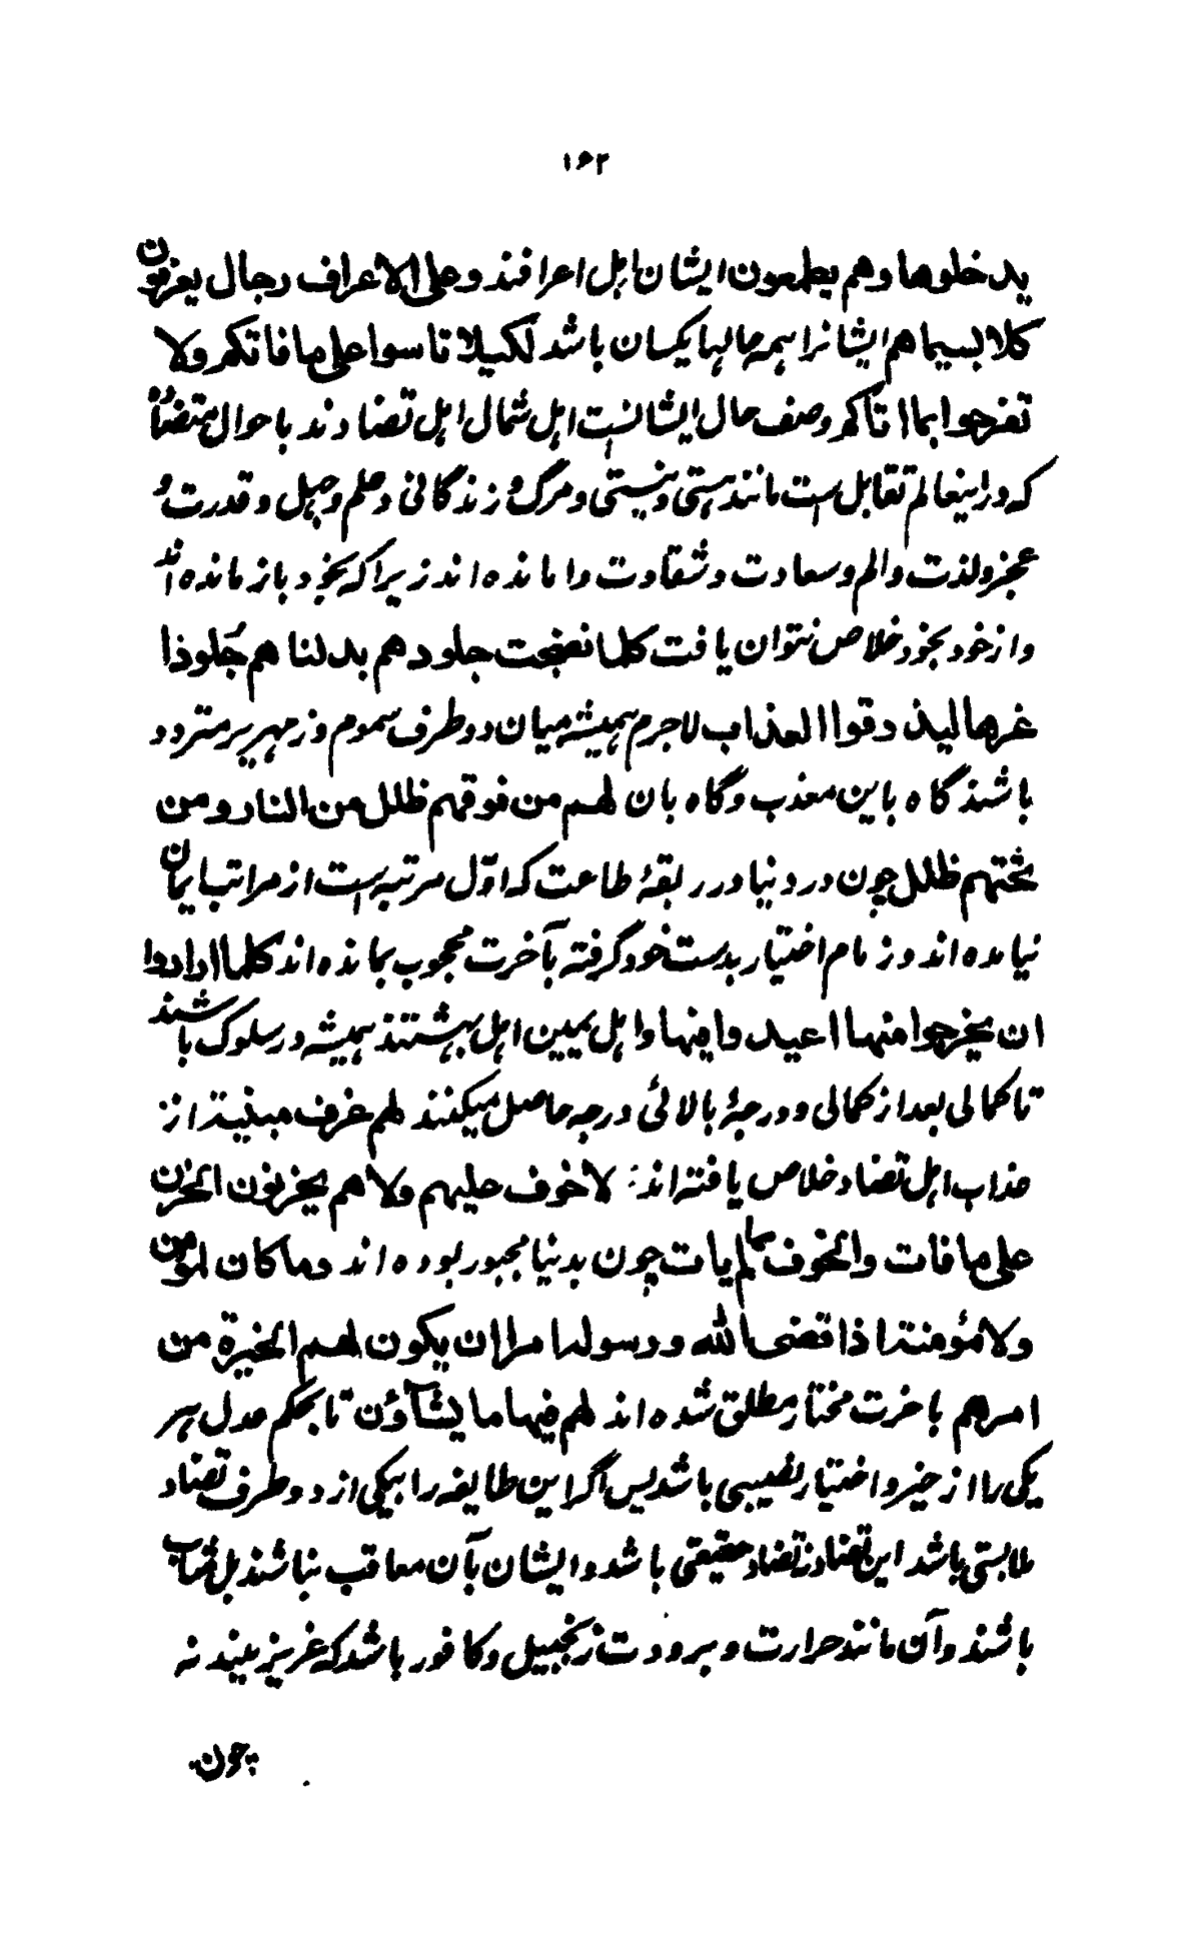 ۱۶۲
یدخلوها وهم یطمعون ایشان اهل اعرافند وعلی الاعراف رجال یعرفون
کلا بسیماهم ایشانرا همه حالها یکسان باشد لکیلا تاسوا علی ما فاتکم ولا
تفرحوا بما اتاکم وصف حال ایشانست اهل شمال اهل تضادند باحوال متضاد
که دراینعالم تقابل است مانند هستی و نیستی و مرگ و زندگانی و علم وجهل و قدرت و
عجز ولذت والم وسعادت و شقاوت وا مانده اند زیرا که بخود باز مانده اند
و از خود بخود خلاص نتوان یافت کلما نضجت جلودهم بدلناهم جلودا
غرها لیذدقوا العذاب لاجرم همیشه میان دو طرف سموم و زمهریر متردد
باشند گاه باین معذب وگاه بان لهم من فوقهم ظلل من النار ومن
تحتهم ظلل چون در دنیا در ربقهٔ طاعت که اوّل مرتبه است از مراتب ایمان
نیامده اند و زمام اختیار بدست خود گرفته بآخرت محجوب بمانده اند کلما ارادوا
ان یخرجوا منها اعیدوا فیها و اهل یمین اهل بهشتند همیشه در سلوک باشند
تا کمالی بعد از کمالی و درجهٔ بالائی درجه حاصل میکنند لهم غرف مبنیة از
عذاب اهل تضاد خلاص یافته اند لا خوف علیهم ولا هم یحزنون الحزن
علی ما فات والخوف مما لم یات چون بدنیا مجبور بوده اند وما کان لمؤمن
ولا مؤمنة اذا قضی الله ورسوله امرا ان یکون لهم الخیرة من
امرهم باخرت مختار مطلق شده اند لهم فیها ما یشآؤن تا بحکم عدل هر
یکی را از خیر و اختیار نصیبی باشد پس اگر این طایفه را بیکی از دو طرف تضاد
ملابستی باشد این تضاد نه تضاد حقیقی باشد و ایشان بآن معاقب نباشند بل مثاب
باشند و آن مانند حرارت و برودت زنجبیل و کافور باشد که غریزیند نه
چون